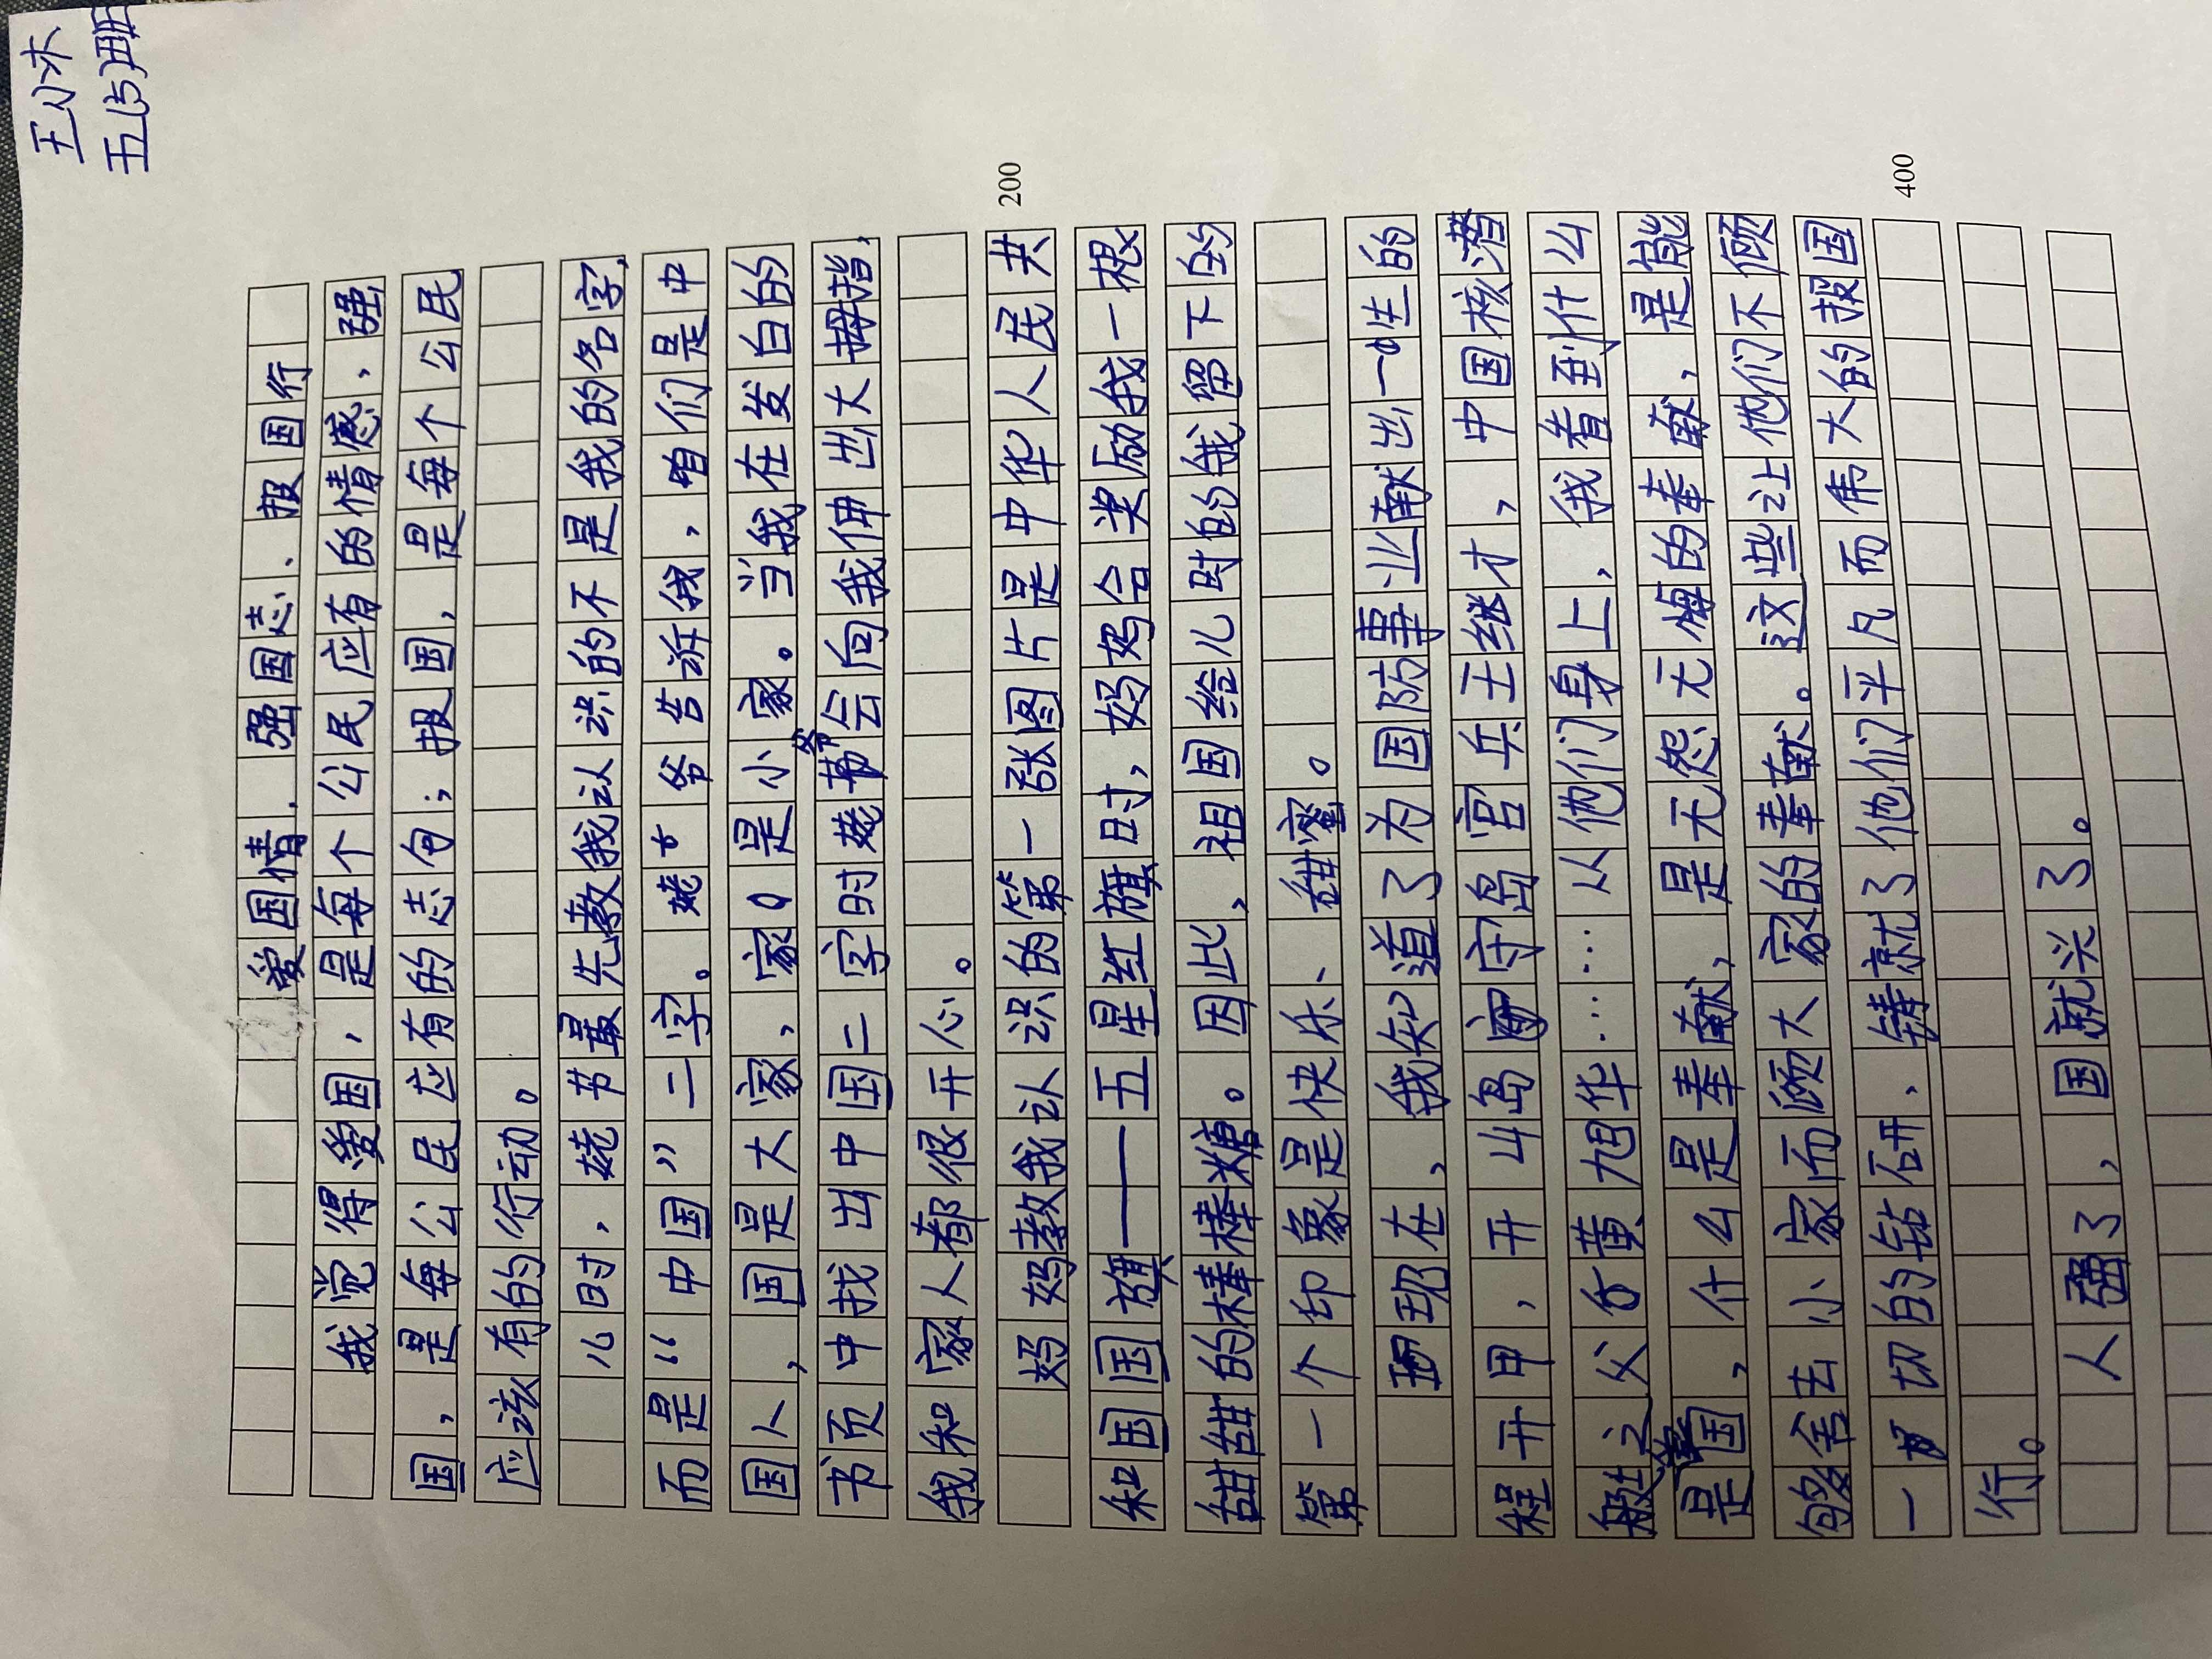 王小木
五(5)班
爱国情、强国志、报国行
我觉得爱国,是每个公民应有的情感、强
国,是每公民应有的志向;报国,是每个公民
应该有的行动。
儿时,姥爷最先教我认识的不是我的名字,
而是“中国”二字。姥爷告诉我,咱们是中
国人,国是大家,家是小家。当我在发白的
书页中找出中国二字时姥爷会向我伸出大拇指,
我和家人都很开心。
200
妈妈教我认识的第一张图片是中华人民共
和国国旗——五星红旗时,妈妈会奖励我一根
甜甜的棒棒糖。因此,祖国给儿时的我留下的
第一个印象是快乐、甜蜜。
现在,我知道了为国防事业献出一生的
程开甲,开山岛守岛官兵王继才,中国核潜
艇之父黄旭华……从他们身上,我看到什么
是爱国,什么是奉献,是无怨无悔的奉献,是能
够舍去小家而顾大家的奉献。这些让他们不顾
一切的钻研、铸就了他们平凡而伟大的报国
400
行。
人强了,国就兴了。